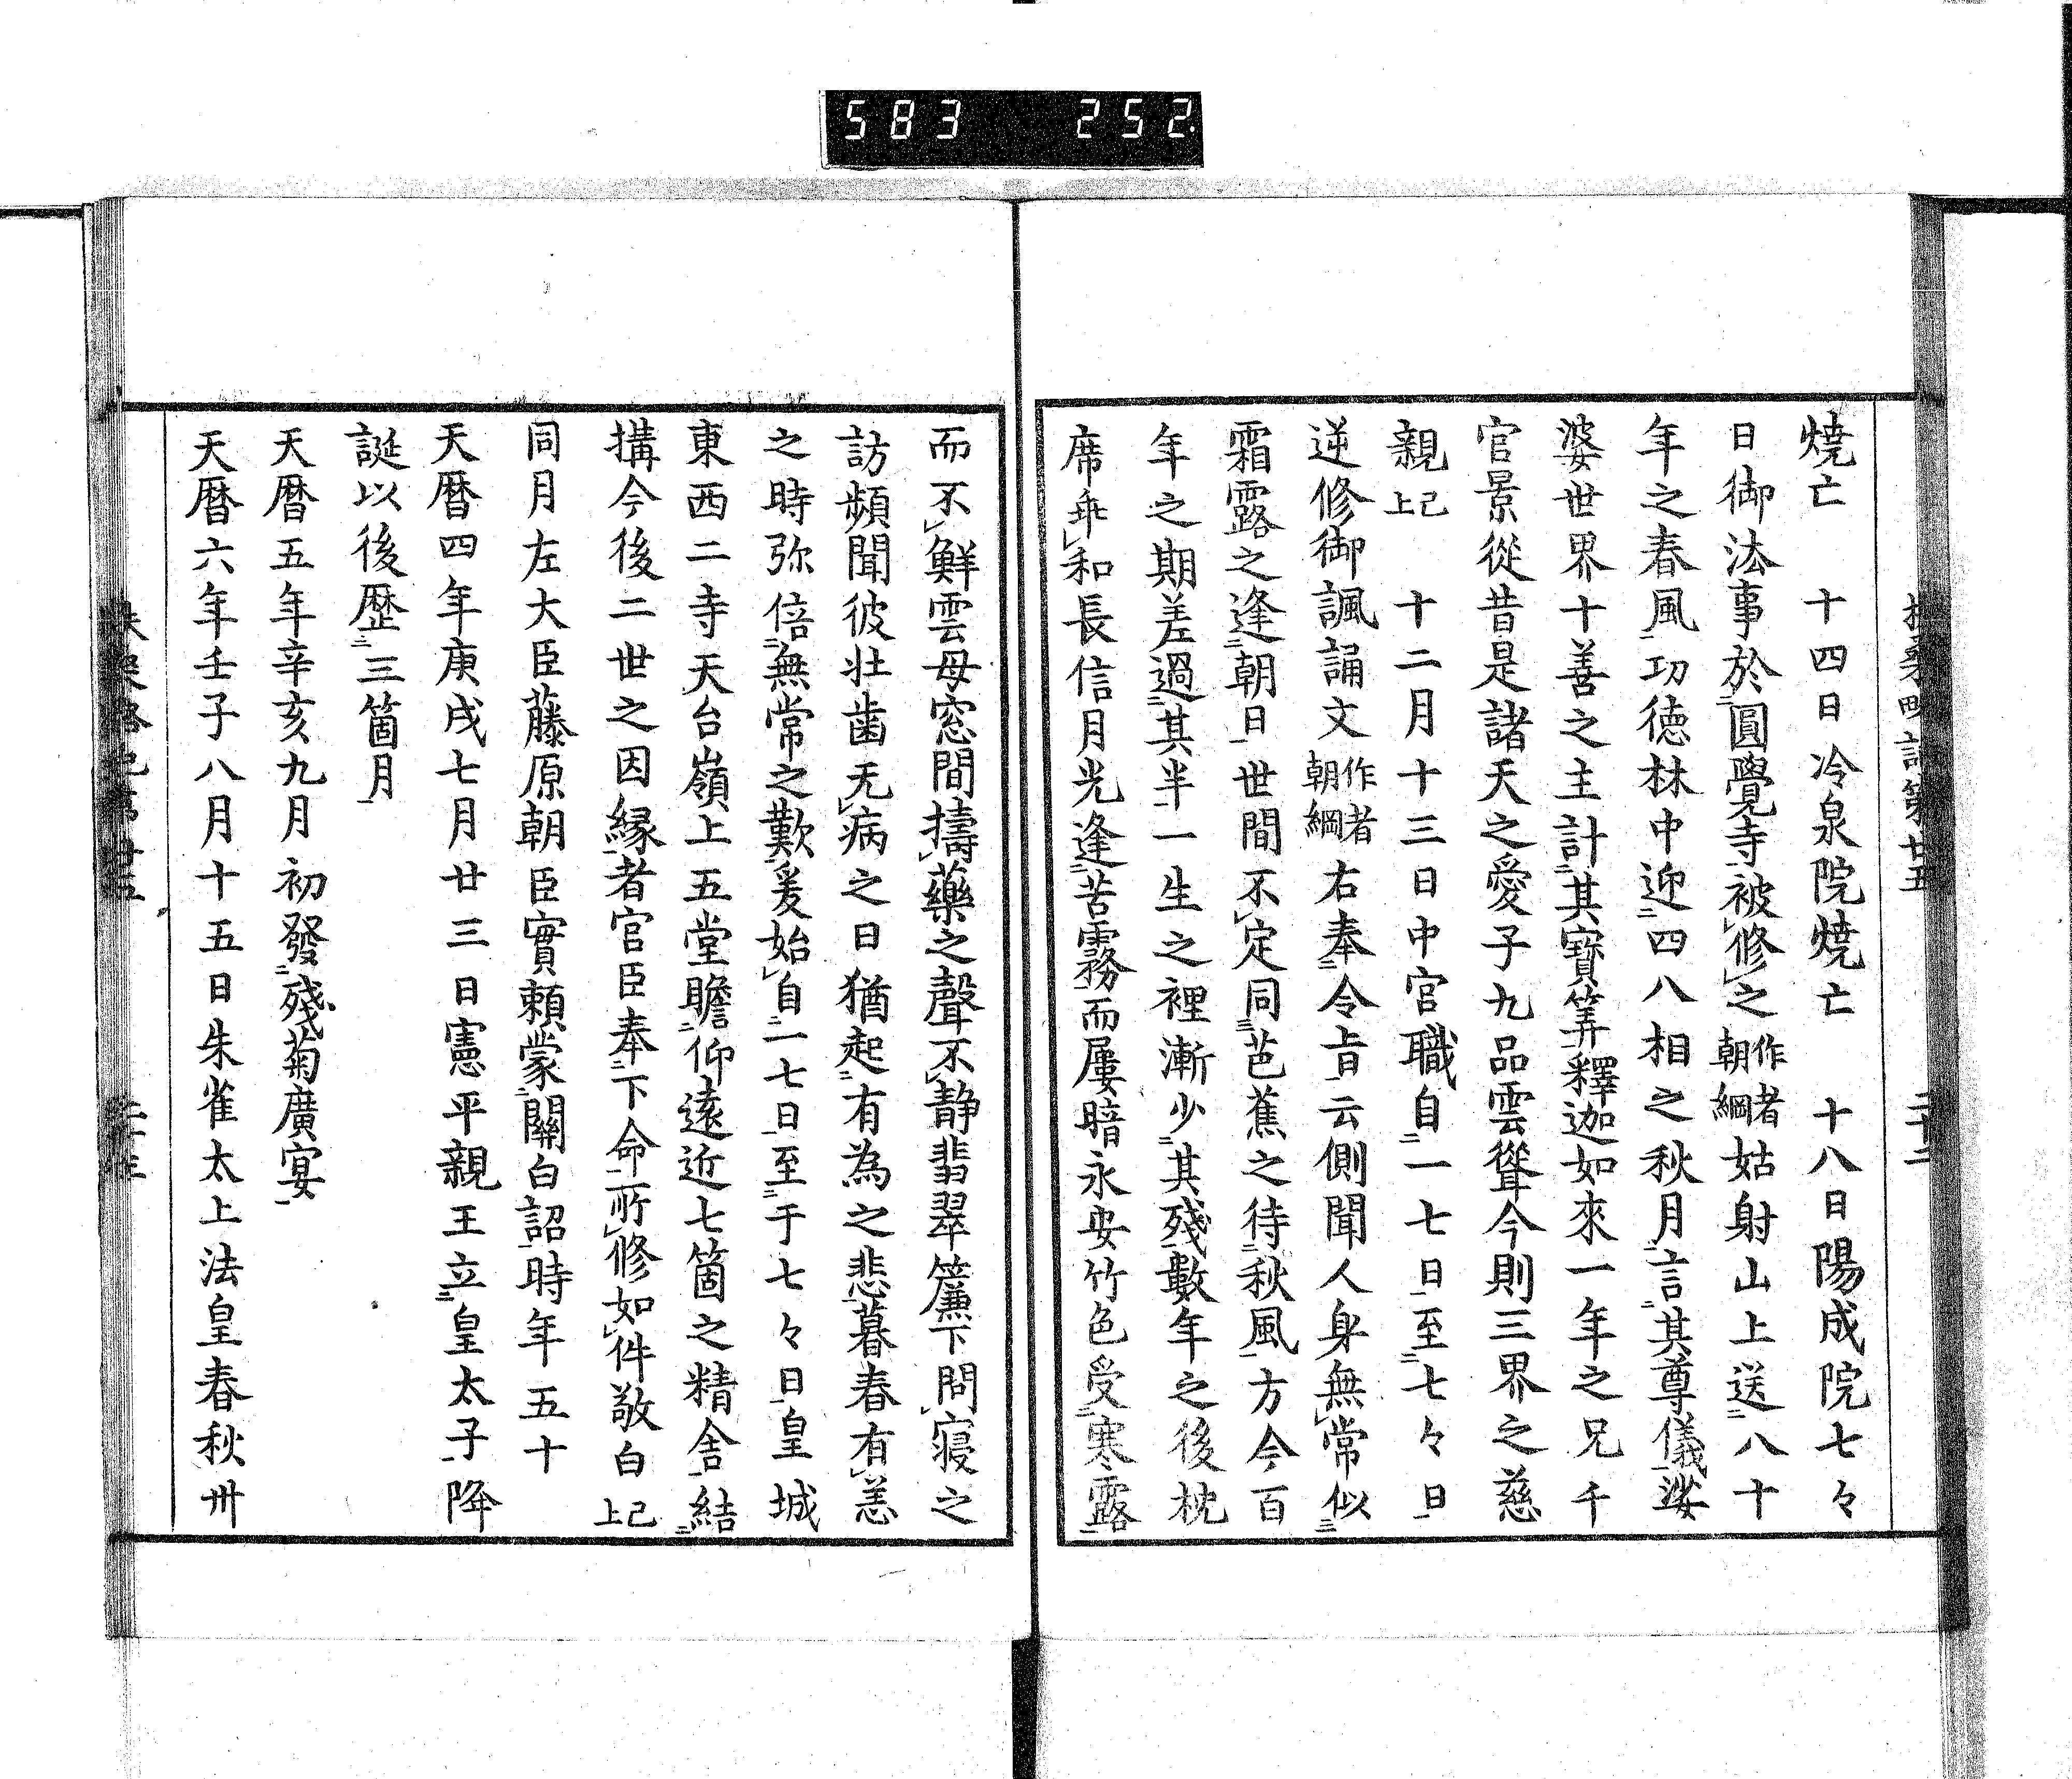 583 252
燒亡　十四日冷泉院燒亡　十八日陽成院七々
日御法事於圓覺寺被修之作者朝綱姑射山上送八十
年之春風功德林中迎四八相之秋月言其尊儀娑
婆世界十善之主計其寶筭釋迦如來一年之兄千
官景從昔是諸天之愛子九品雲聳今則三界之慈
親已上　十二月十三日中宮職自一七日至七々日
逆修御諷誦文作者朝綱右奉令旨云側聞人身無常似
霜露之逢朝日世間不定同芭蕉之待秋風方今百
年之期差過其半一生之裡漸少其殘數年之後枕
席乖和長信月光逢苦霧而屢暗永安竹色受寒露
而不鮮雲母窓間擣藥之聲不静翡翠簾下問寢之
訪頻聞彼壯歯无病之日猶起有為之悲暮春有恙
之時弥倍無常之歎爰始自一七日至于七々日皇城
東西二寺天台嶺上五堂瞻仰遠近七箇之精舍結
搆今後二世之因緣者官臣奉下命所修如件敬白已上
同月左大臣藤原朝臣實賴蒙關白詔時年五十
天曆四年庚戌七月廿三日憲平親王立皇太子降
誕以後歷三箇月
天曆五年辛亥九月初發殘菊廣宴
天曆六年壬子八月十五日朱雀太上法皇春秋卅